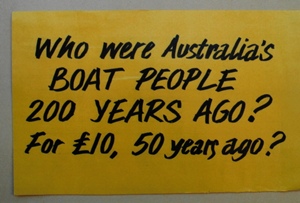 Who were Australia's
BOAT PEOPLE
200 YEARS AGO?
For £10, 50 years ago?